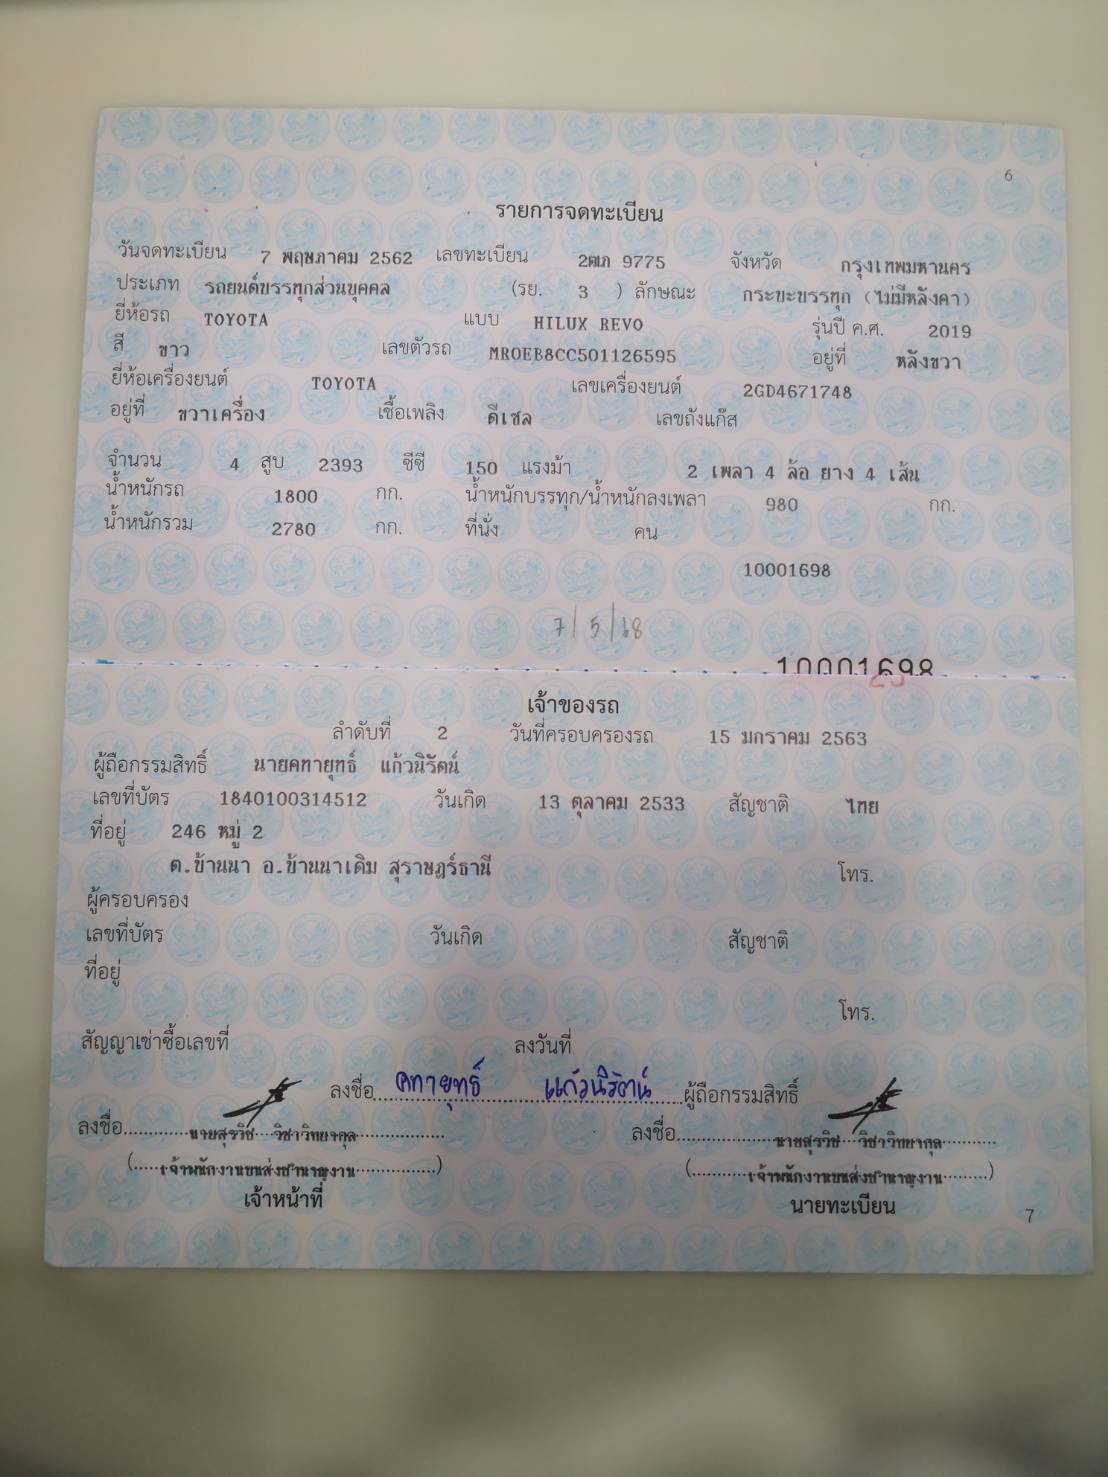 6
รายการจดทะเบียน
วันจดทะเบียน 7 พฤษภาคม 2562 เลขทะเบียน 2ฒภ 9775 จังหวัด กรุงเทพมหานคร
ประเภท รถยนต์บรรทุกส่วนบุคคล (รย. 3 ) ลักษณะ กระบะบรรทุก (ไม่มีหลังคา)
ยี่ห้อรถ TOYOTA แบบ HILUX REVO รุ่นปี ค.ศ. 2019
สี ขาว เลขตัวรถ MR0EB8CC501126595 อยู่ที่ หลังขวา
ยี่ห้อเครื่องยนต์ TOYOTA เลขเครื่องยนต์ 2GD4671748
อยู่ที่ ขวาเครื่อง เชื้อเพลิง ดีเซล เลขถังแก๊ส
จำนวน 4 สูบ 2393 ซีซี 150 แรงม้า 2 เพลา 4 ล้อ ยาง 4 เส้น
น้ำหนักรถ 1800 กก. น้ำหนักบรรทุก/น้ำหนักลงเพลา 980 กก.
น้ำหนักรวม 2780 กก. ที่นั่ง คน
10001698
7/5/68
10001698
เจ้าของรถ
ลำดับที่ 2 วันที่ครอบครองรถ 15 มกราคม 2563
ผู้ถือกรรมสิทธิ์ นายคทายุทธ์ แก้วนิรัตน์
เลขที่บัตร 1840100314512 วันเกิด 13 ตุลาคม 2533 สัญชาติ ไทย
ที่อยู่ 246 หมู่ 2
ต.บ้านนา อ.บ้านนาเดิม สุราษฎร์ธานี โทร.
ผู้ครอบครอง
เลขที่บัตร วันเกิด สัญชาติ
ที่อยู่
โทร.
สัญญาเช่าซื้อเลขที่ ลงวันที่
ลงชื่อ คทายุทธ์ แก้วนิรัตน์ ผู้ถือกรรมสิทธิ์
ลงชื่อ นายสุรวิช วิชาวิทยากุล ลงชื่อ นายสุรวิช วิชาวิทยากุล
(เจ้าพนักงานขนส่งชำนาญงาน) (เจ้าพนักงานขนส่งชำนาญงาน)
เจ้าหน้าที่ นายทะเบียน
7